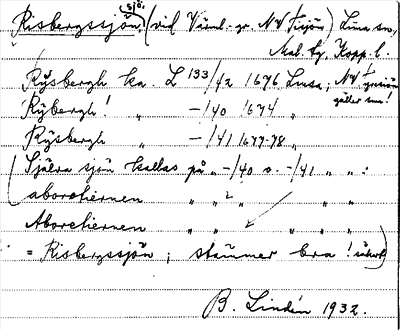 Risbergssjön sjö. (vid Värml.-gr. NV Tisjön) Lima sn,
Mal. tg. Kopp. l.
Rÿsbergh ka. L 133/42 1676 Lima; NV
gäller sm!
Rÿbergh! " —/40 1674 "
Rÿsbergh " —/41 1677-78 "
(Själva sjön kallas på " —/40 o. —/41 " " :
aborrhiernen " " "
Aborrhiernen " " "
= Risbergssjön; stämmer bra!
B. Lindén 1932.